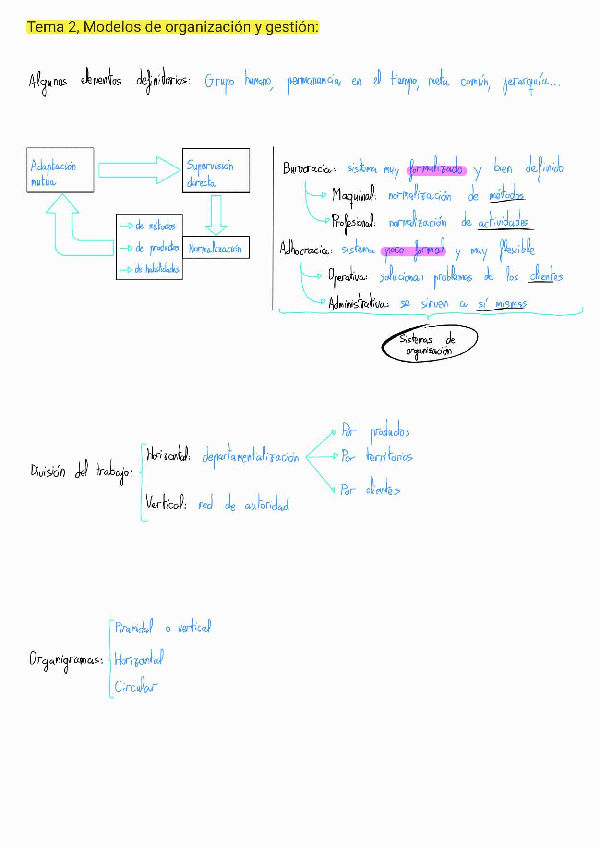 Tema 2, Modelos de organización y gestión:
Algunos elementos definitorios: Grupo humano, permanencia en el tiempo, meta común, jerarquía...
Adaptación
mutua
Supervisión
directa
→ de métodos
→ de productos
→ de habilidades
Normalización
Burocracia: sistema muy formalizado y bien definido
Maquinal: normalización de métodos
Profesional: normalización de actividades
Adhocracia: sistema poco formal y muy flexible
Operativa: solucionar problemas de los clientes
Administrativa: se sirven a sí mismos
Sistemas de
organización
División del trabajo:
Horizontal: departamentalización
Por productos
Por territorios
Por clientes
Vertical: red de autoridad
Organigramas:
Piramidal o vertical
Horizontal
Circular